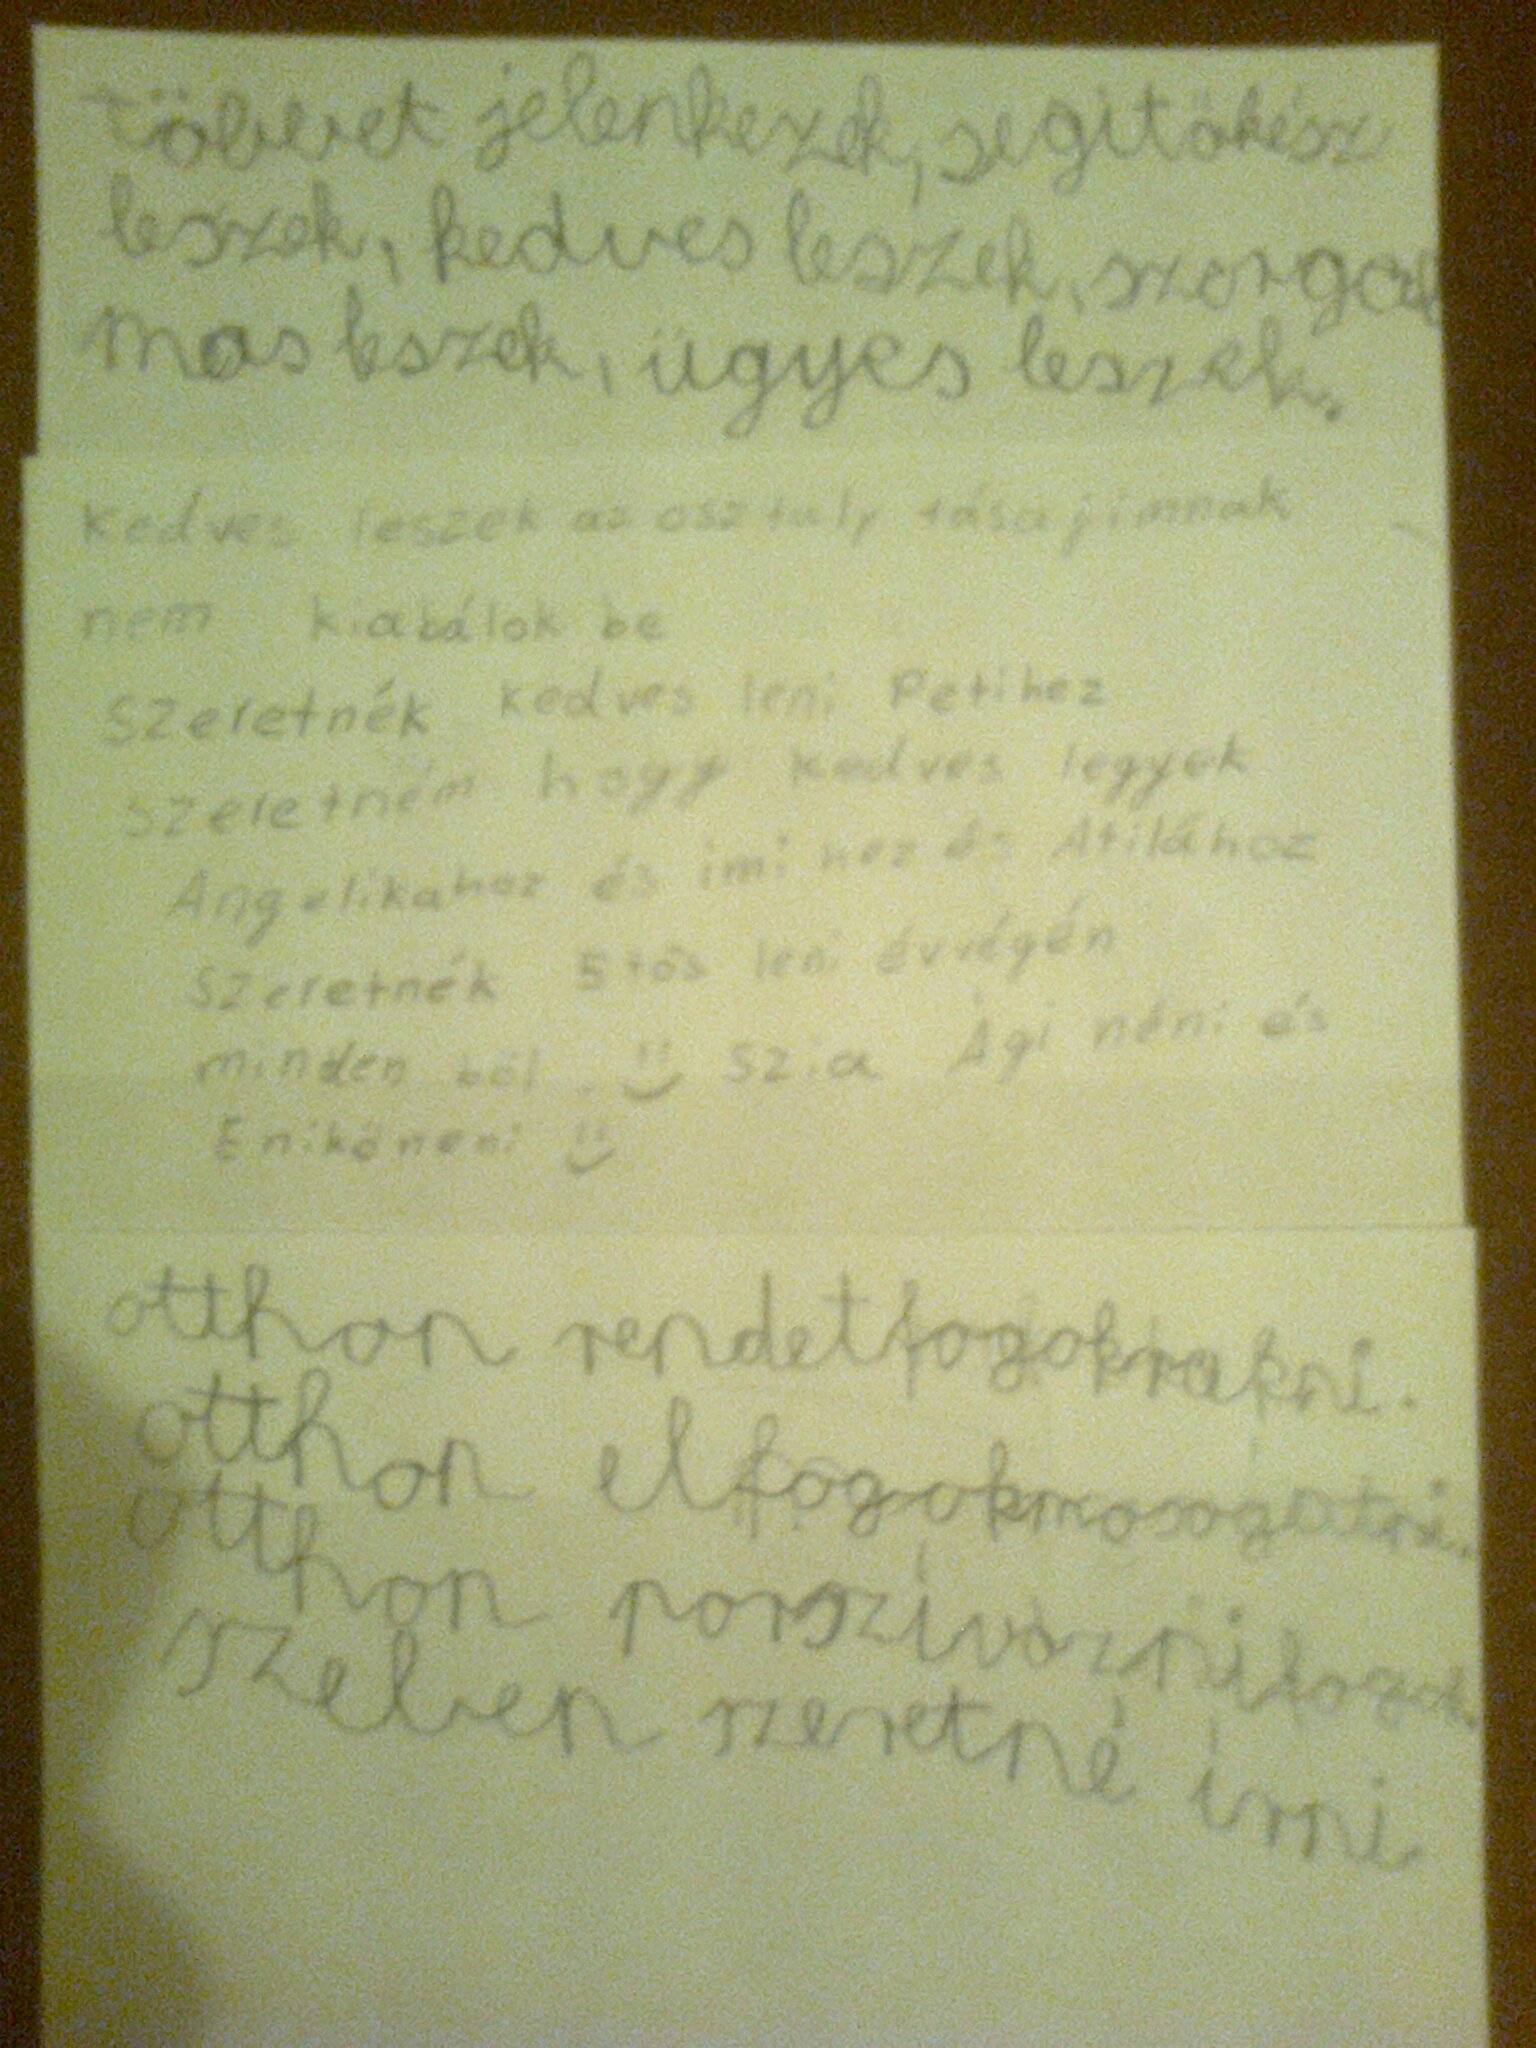 többet jelenkezek, segitőkész
leszek, kedves leszek, szorgal
mas leszek, ügyes leszek.
kedves leszek az osztály tásajimnak
nem kiabálok be
szeretnék kedves leni Petihez
szeretném hogy kedves legyek
Angelikahoz és imi hez és Atilához
szeretnék 5tös leni évvégén
minden ből. szia Ági néni és
Enikőneni
otthon rendetfogokrakni.
otthon elfogokmosogatni.
otthon porszívoznifogok.
szeben szeretné írni